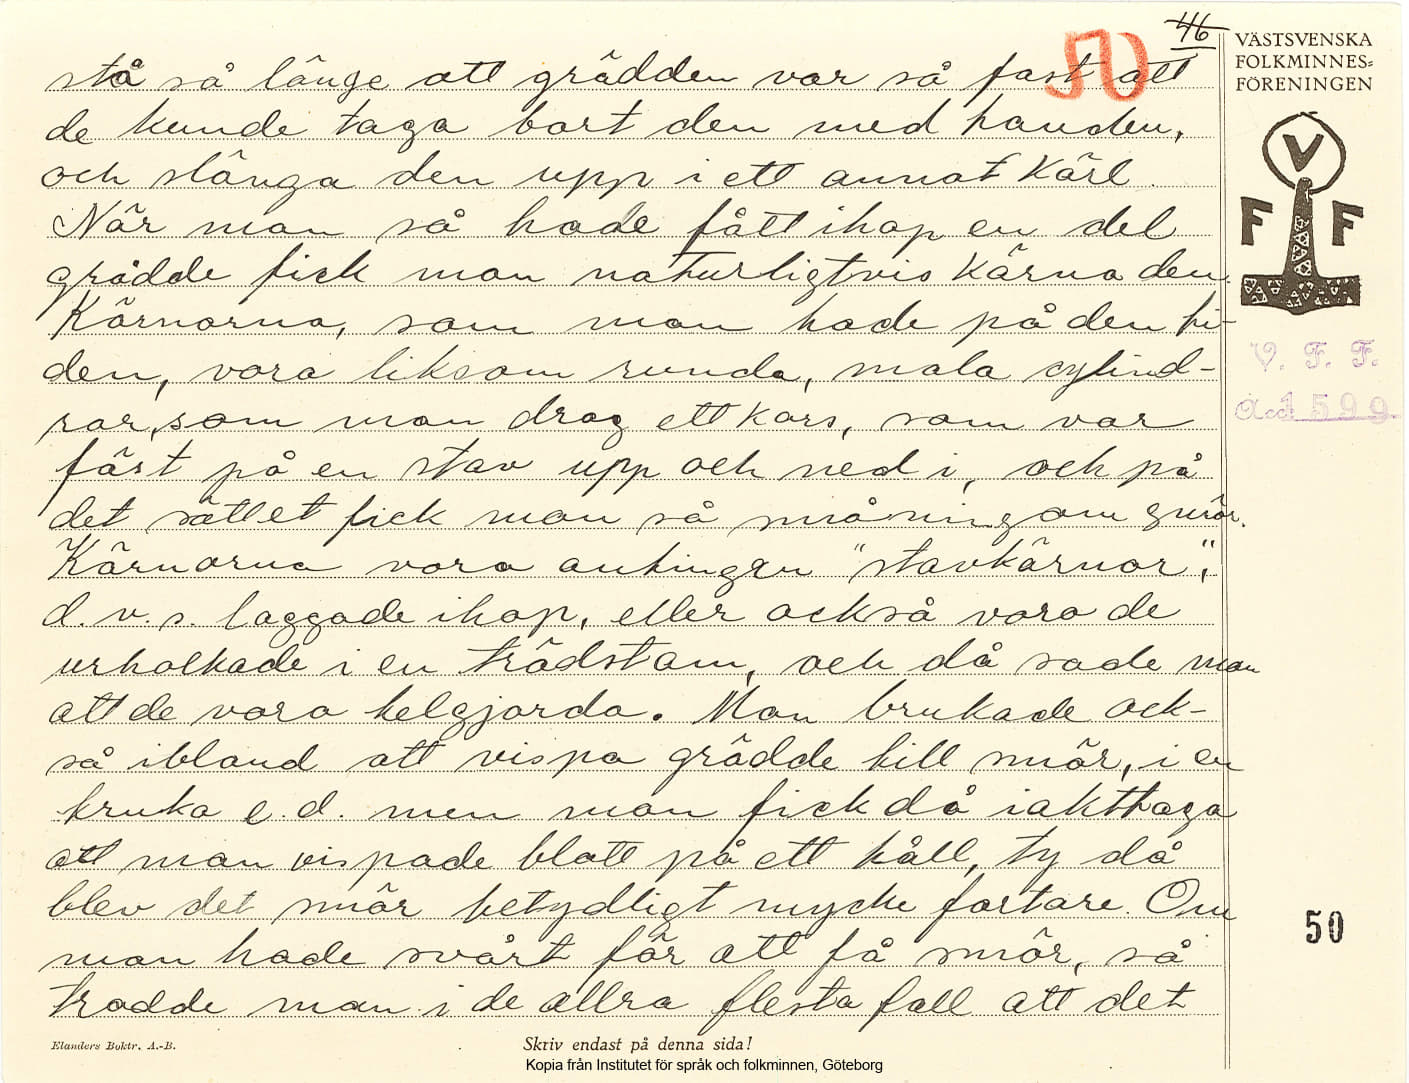 46
50
VÄSTSVENSKA
FOLKMINNES=
FÖRENINGEN
V
F F
V. F. F.
Acc 1599
stå så länge att grädden var så fast att
de kunde taga bort den med handen,
och slänga den upp i ett annat kärl.
När man så hade fått ihop en del
grädde fick man naturligtvis kärna den.
Kärnorna, som man hade på den ti-
den, voro liksom runda, smala cylind-
rar, som man drog ett kors, som var
fäst på en stav upp och ned i, och på
det sättet fick man så småningom smör.
Kärnorna voro antingen "stavkärnor",
d.v.s. laggade ihop, eller också voro de
urholkade i en trädstam, och då sade man
att de voro helgjorda. Man brukade ock-
så ibland att vispa grädde till smör, i en
kruka e.d. men man fick då iakttaga
att man vispade blott på ett håll, ty då
blev det smör betydligt mycke fortare. Om
man hade svårt för att få smör, så
trodde man i de allra flesta fall att det
50
Elanders Boktr. A.-B.
Skriv endast på denna sida!
Kopia från Institutet för språk och folkminnen, Göteborg